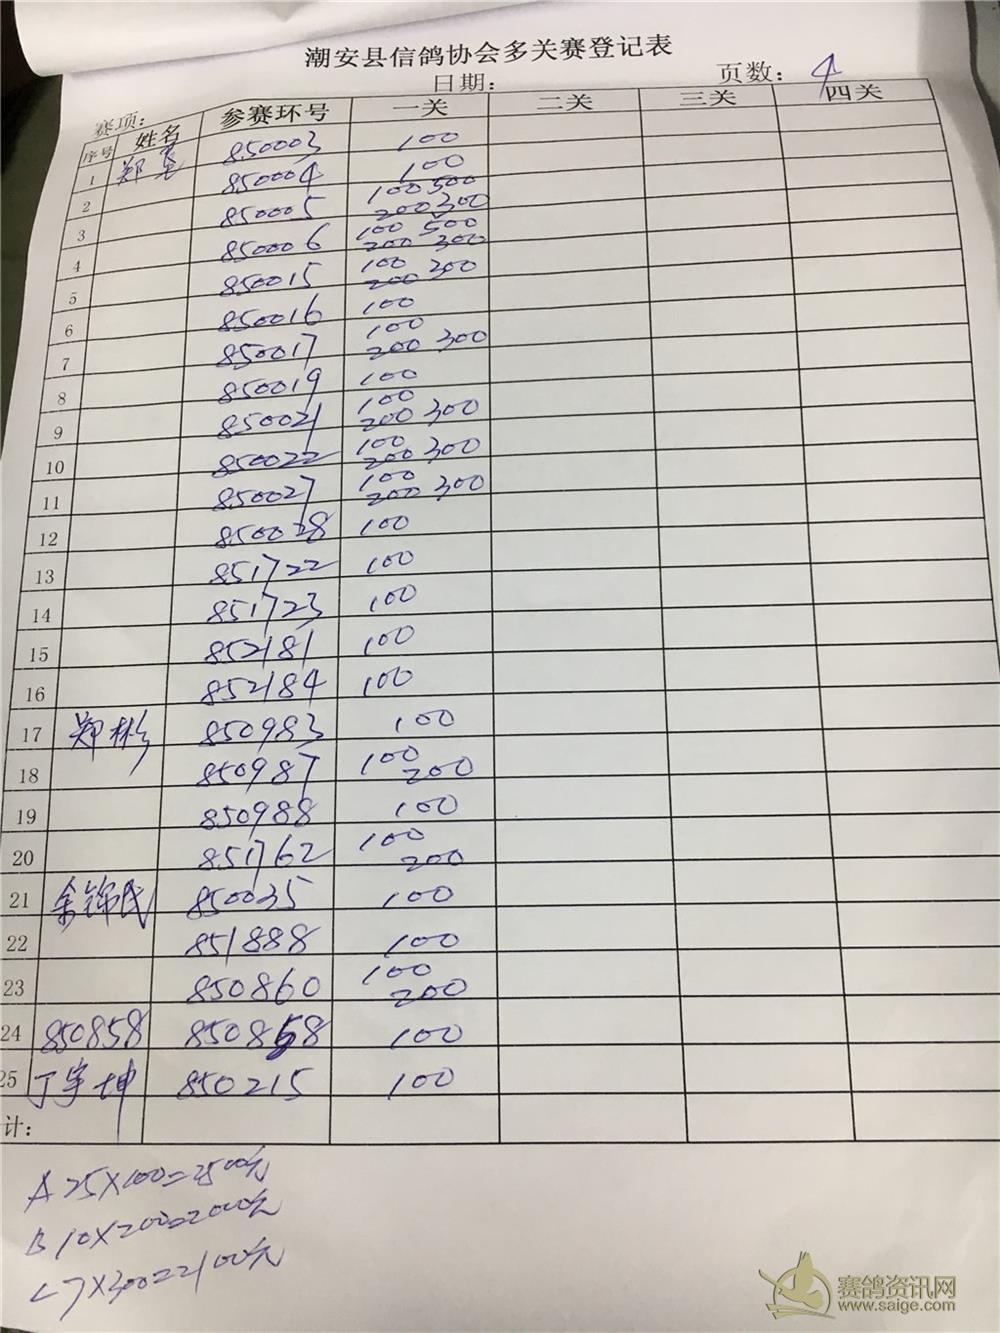 潮安县信鸽协会多关赛登记表
赛项： 日期： 页数：4
序号 姓名 参赛环号 一关 二关 三关 四关
1 郑 850003 100
2 850004 100
3 850005 100 500 200 300
4 850006 100 500 200 300
5 850015 100 200 300
6 850016 100
7 850017 100 200 300
8 850019 100
9 850021 100 200 300
10 850022 100 200 300
11 850027 100 200 300
12 850028 100
13 851722 100
14 851723 100
15 852181 100
16 852184 100
17 郑彬 850983 100
18 850987 100 200
19 850988 100
20 851762 100 200
21 余锦民 850035 100
22 851888 100
23 850860 100 200
24 850858 850858 100
25 丁宇坤 850215 100
计：
A 25×100=2500元
B 10×200=2000元
C 7×300=2100元
赛鸽资讯网
www.saige.com